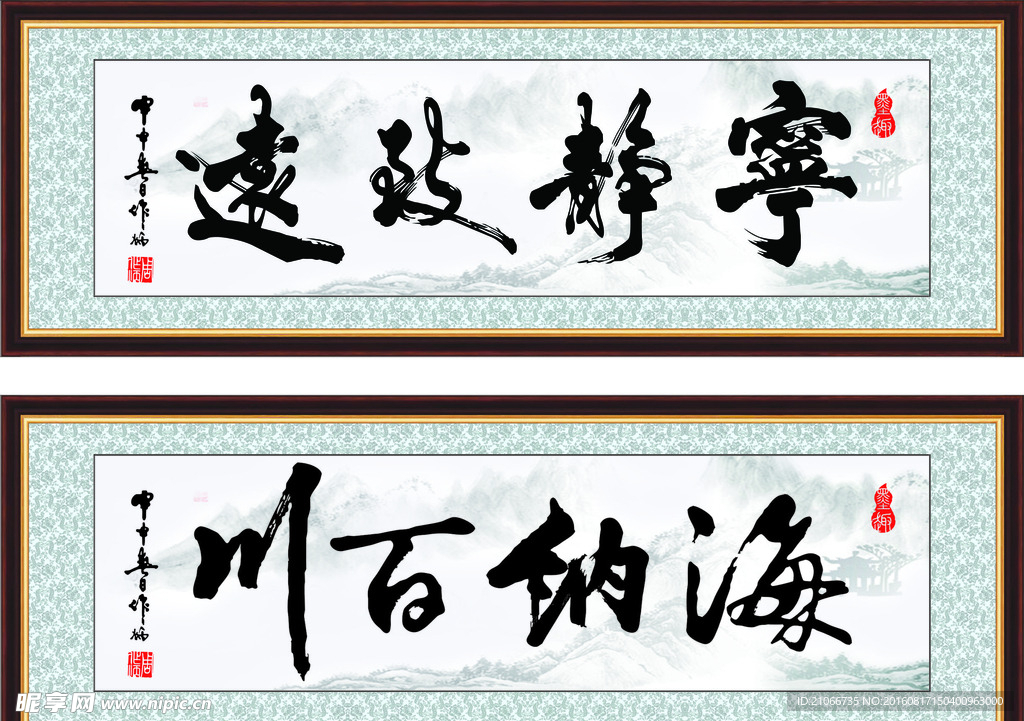 寧靜致遠
墨趣
甲申春日作
海納百川
墨趣
甲申春日作
昵享网 www.nipic.cn
ID:21066735 NO:20160817150400963000